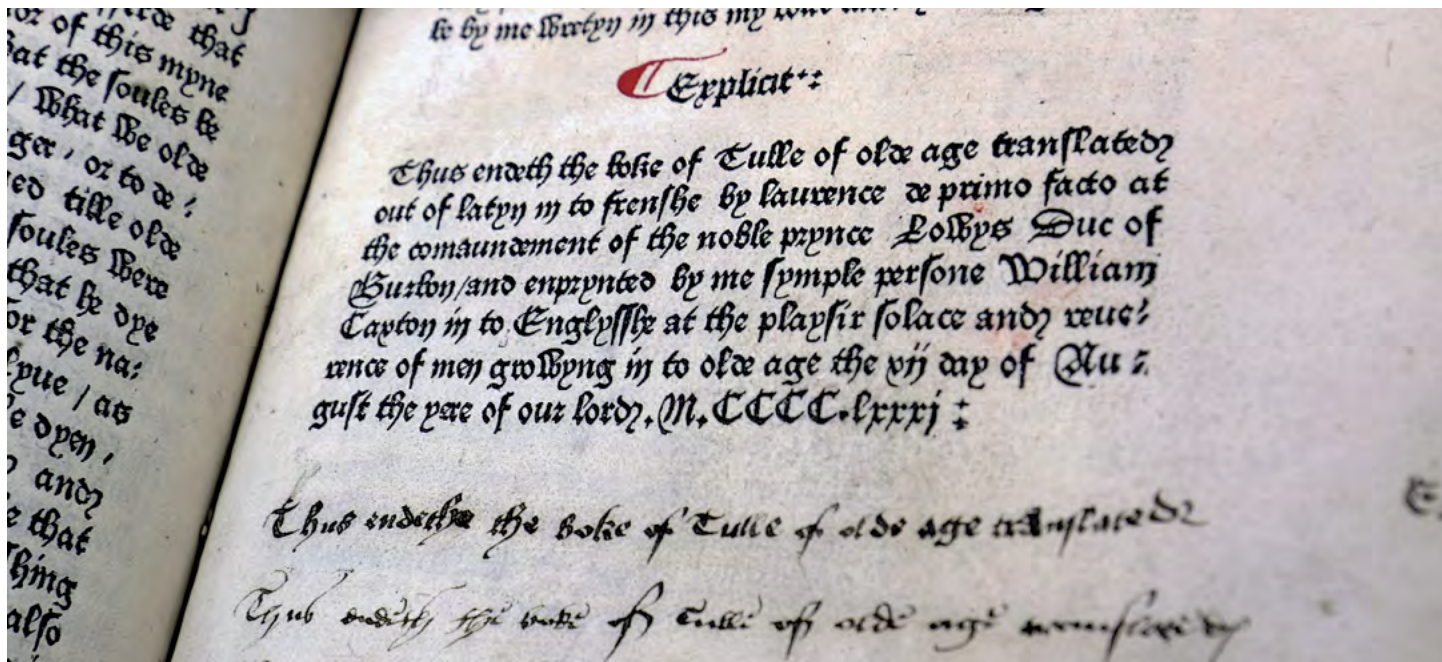 erde that
or of this myne
hat the soules be
/ What we olde
ger, or to de:
ed tille olde
soules were
that he dye
or the na:
lyue / as
e dyen,
and
e that
thing
also
be by me wretyn in this my
Explicit
Thus endeth the boke of Tulle of olde age translated
out of latyn in to frenshe by laurence de primo facto at
the comaundement of the noble prynce Lowys Duc of
Burbon/and enprynted by me symple persone William
Caxton in to Englysshe at the playsir solace and reue:
rence of men growyng in to olde age the xij day of Au:
gust the yere of our lord. M. CCCC. lxxxj:
Thus endethe the boke of Tulle of olde age translated
Thus endeth the boke of Tulle of olde age translated